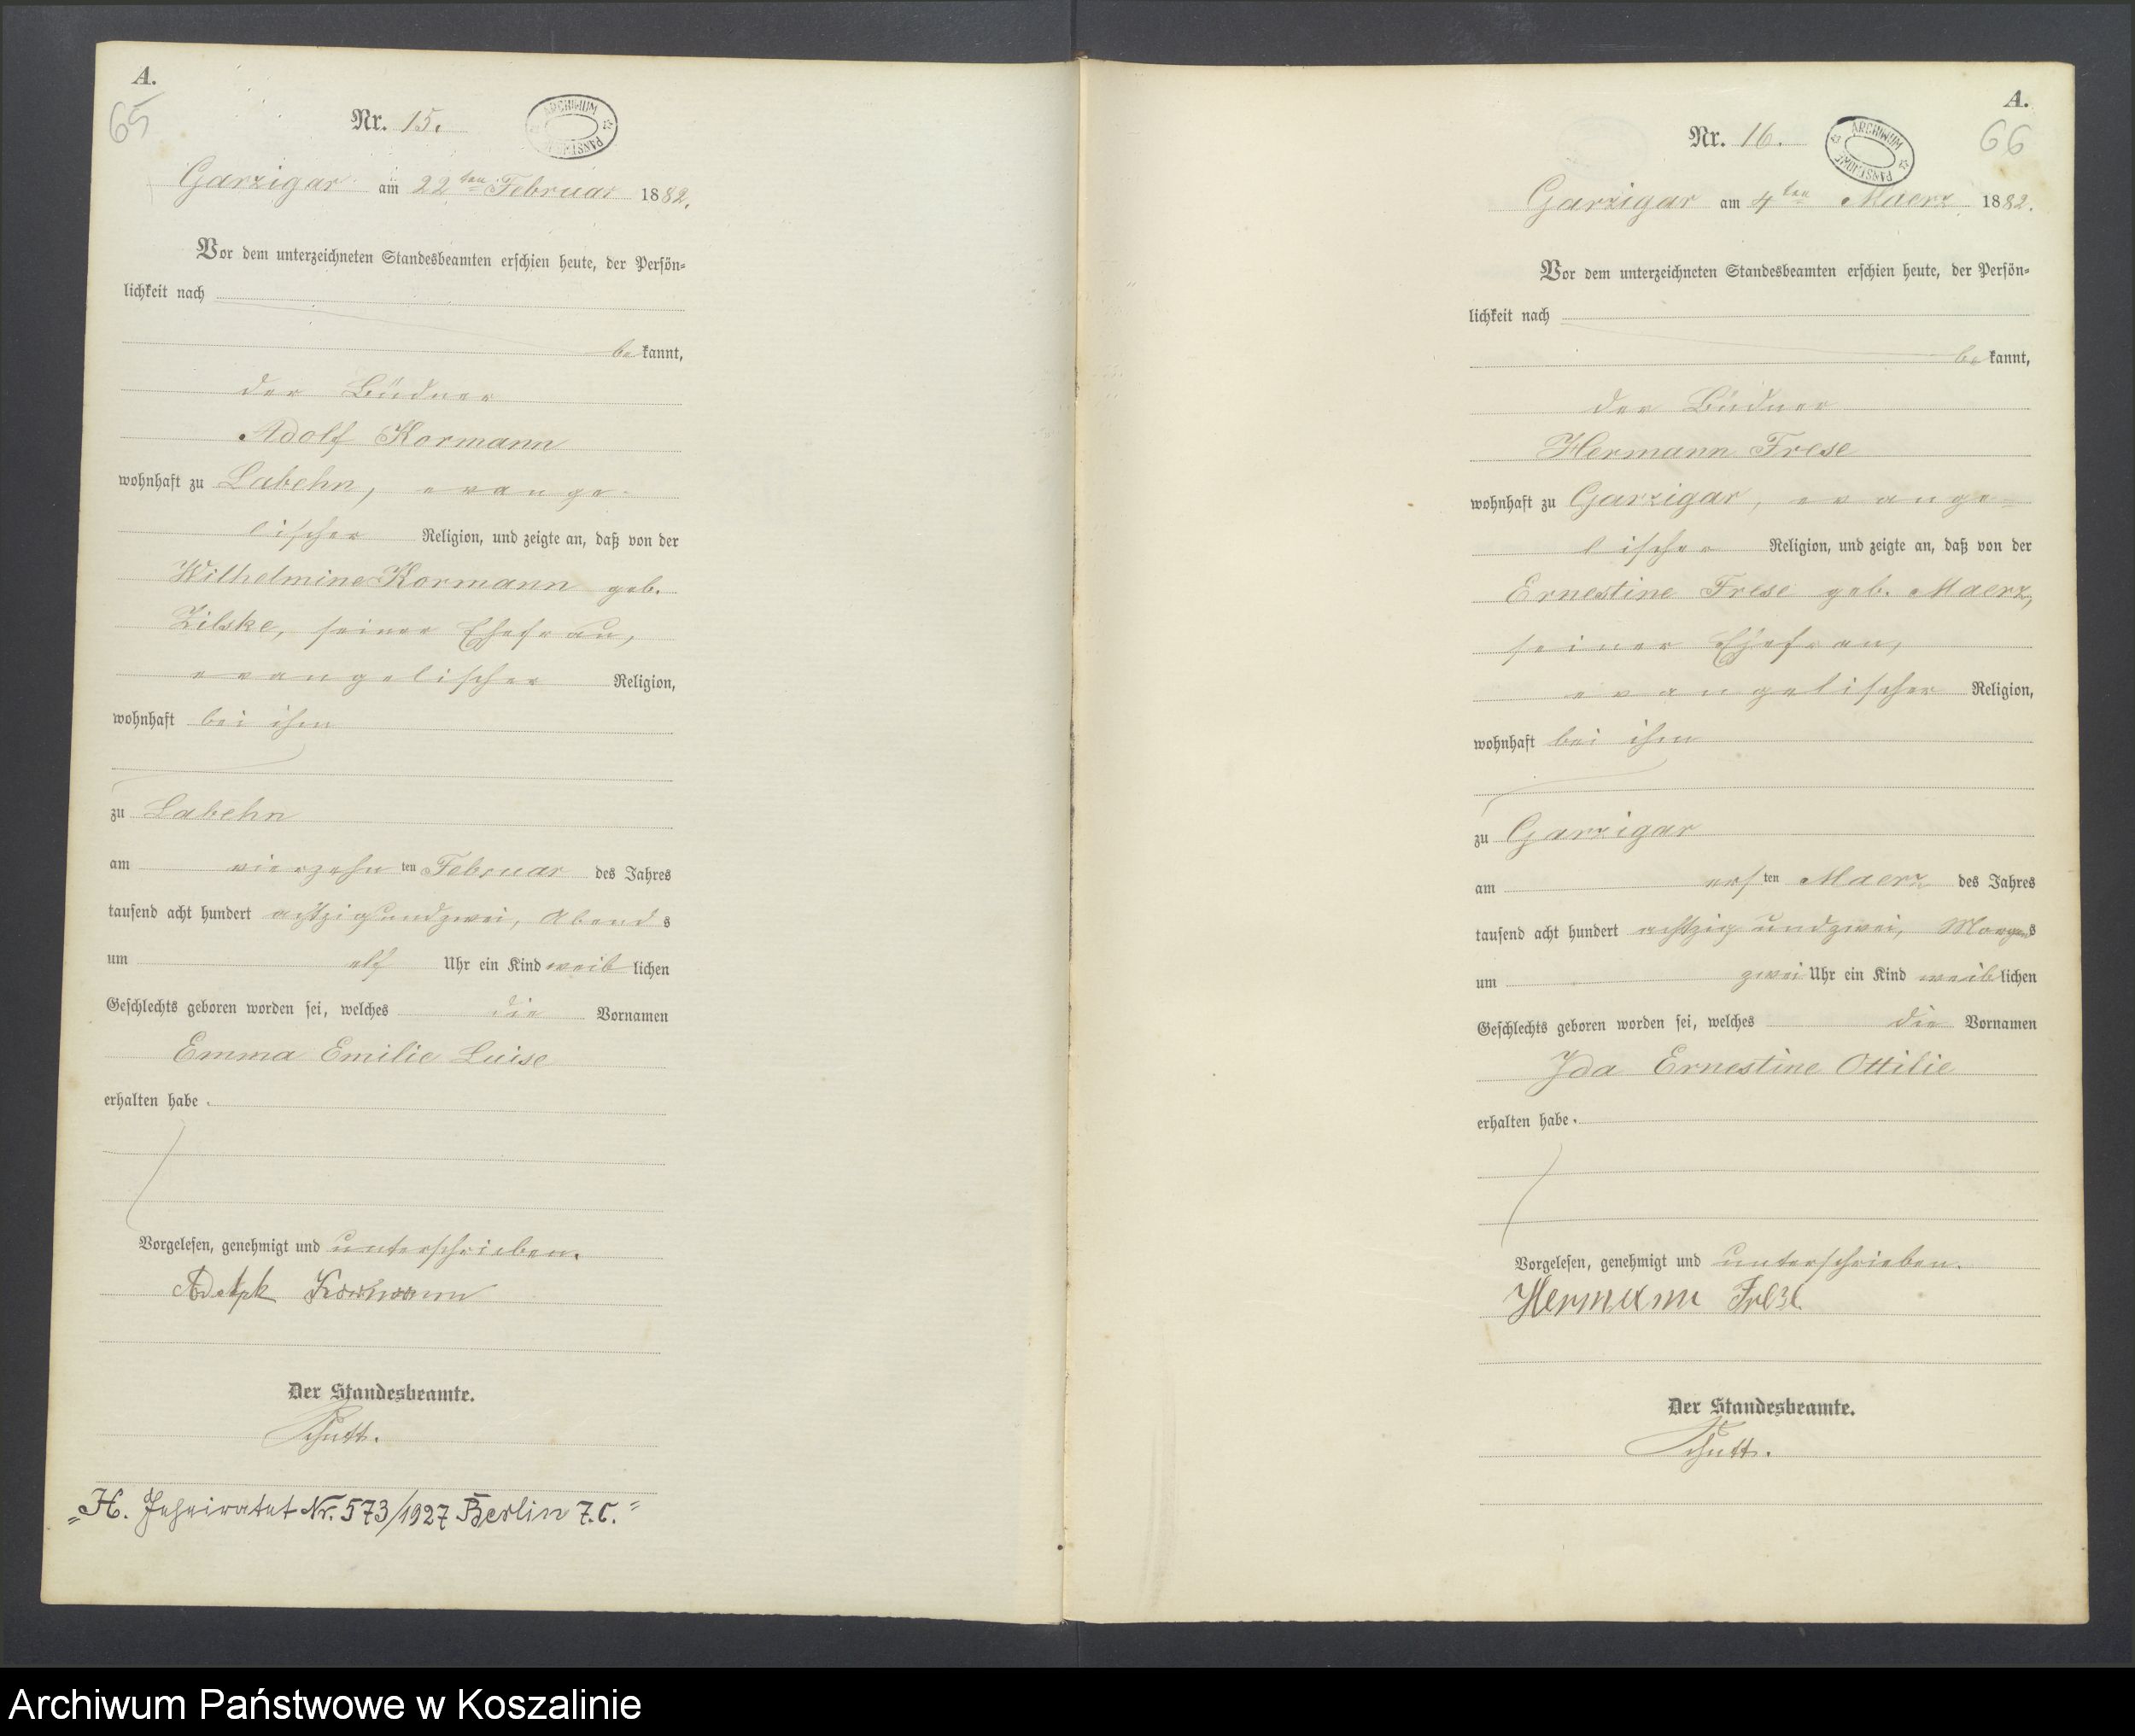 A.
65
Nr. 15.
ARCHIWUM PAŃSTW
Garzigar am 22ten Februar 1882.
Vor dem unterzeichneten Standesbeamten erschien heute, der Persön-
lichkeit nach
bekannt,
der Büdner
Adolf Kormann
wohnhaft zu Labehn, evange-
lischer Religion, und zeigte an, daß von der
Wilhelmine Kormann geb.
Zilske, seiner Ehefrau,
evangelischer Religion,
wohnhaft bei ihm
zu Labehn
am vierzehnten Februar des Jahres
tausend acht hundert achtzig und zwei, Abends
um elf Uhr ein Kind weiblichen
Geschlechts geboren worden sei, welches die Vornamen
Emma Emilie Luise
erhalten habe.
Vorgelesen, genehmigt und unterschrieben.
Kormann
Der Standesbeamte.
„H. Geheiratet Nr. 573/1927 Berlin 7.C."
A.
66
Nr. 16.
ARCHIWUM PAŃSTWOWE
Garzigar am 4ten Maerz 1882.
Vor dem unterzeichneten Standesbeamten erschien heute, der Persön-
lichkeit nach
bekannt,
der Büdner
Hermann Frese
wohnhaft zu Garzigar, evange-
lischer Religion, und zeigte an, daß von der
Ernestine Frese geb. Maerz,
seiner Ehefrau,
evangelischer Religion,
wohnhaft bei ihm
zu Garzigar
am ersten Maerz des Jahres
tausend acht hundert achtzig und zwei, Morgens
um zwei Uhr ein Kind weiblichen
Geschlechts geboren worden sei, welches die Vornamen
Ida Ernestine Ottilie
erhalten habe.
Vorgelesen, genehmigt und unterschrieben.
Hermann Frese
Der Standesbeamte.
Archiwum Państwowe w Koszalinie